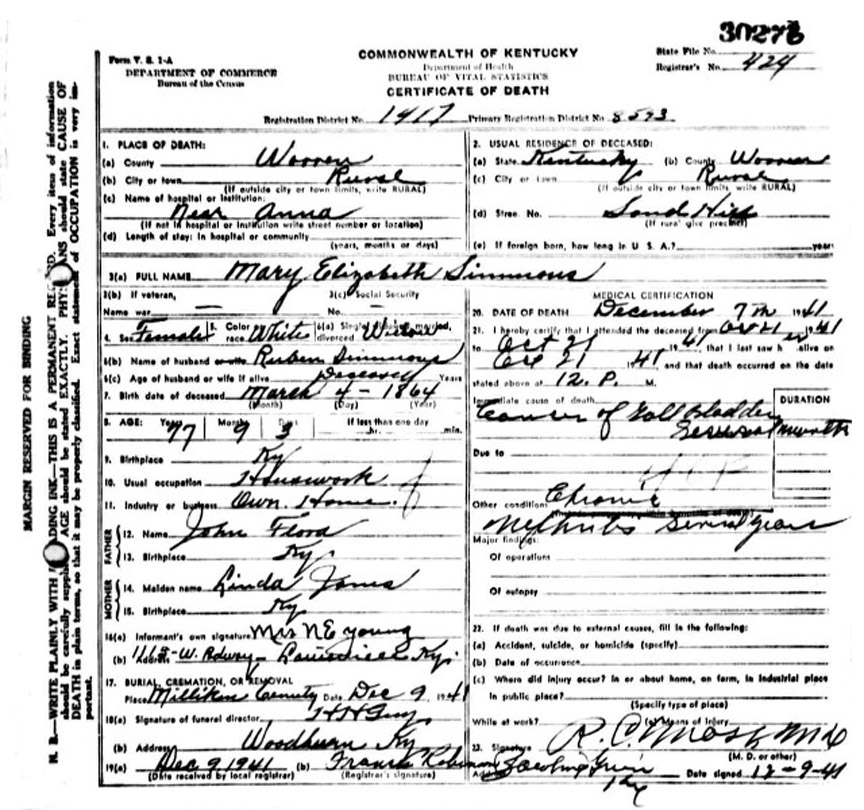 30276
Form V. S. 1-A
DEPARTMENT OF COMMERCE
Bureau of the Census
COMMONWEALTH OF KENTUCKY
Department of Health
BUREAU OF VITAL STATISTICS
CERTIFICATE OF DEATH
State File No.
Registrar's No. 424
Registration District No. 1417 Primary Registration District No. 8593
1. PLACE OF DEATH:
(a) County Warren
(b) City or town Rural
(If outside city or town limits, write RURAL)
(c) Name of hospital or institution:
Near Anna
(If not in hospital or institution write street number or location)
(d) Length of stay: In hospital or community
(years, months or days)
2. USUAL RESIDENCE OF DECEASED:
(a) State Kentucky (b) County Warren
(c) City or town Rural
(If outside city or town limits, write RURAL)
(d) Street No. Sand Hill
(If rural give precinct)
(e) If foreign born, how long in U. S. A.? years
3(a) FULL NAME Mary Elizabeth Simmons
3(b) If veteran,
Name war —
3(c) Social Security
No. —
4. Sex Female 5. Color race White 6(a) married, divorced
6(b) Name of husband or wife Ruben Simmons
6(c) Age of husband or wife if alive Deceased Years
7. Birth date of deceased March 4 - 1864
(Month) (Day) (Year)
8. AGE: Years 77 Months 9 Days 3 If less than one day
hr. min.
9. Birthplace Ky
10. Usual occupation Housework
11. Industry or business Own Home
FATHER
12. Name John Flora
13. Birthplace Ky
MOTHER
14. Maiden name Linda Jones
15. Birthplace Ky
16(a) Informant's own signature Mrs N E Young
(b) Address 1115- W. Bdway - Louisville Ky.
17. BURIAL, CREMATION, OR REMOVAL
Place Milliken Date Dec 9 1941
18(a) Signature of funeral director
(b) Address Woodburn Ky
19(a) Dec 9 1941 (b)
(Date received by local registrar) (Registrar's signature)
MEDICAL CERTIFICATION
20. DATE OF DEATH December 7th 1941
21. I hereby certify that I attended the deceased from Oct 21 1941
to Oct 21 1941, that I last saw h er alive on
Oct 21 1941, and that death occurred on the date
stated above at 12. P. M.
Immediate cause of death DURATION
Cancer of Gall Bladder
Several months
Due to
Other conditions Chronic
Nephritis Several years
Major findings:
Of operations
Of autopsy
22. If death was due to external causes, fill in the following:
(a) Accident, suicide, or homicide (specify)
(b) Date of occurrence
(c) Where did injury occur? in or about home, on farm, in industrial place
in public place?
(Specify type of place)
While at work? (e) Means of injury
23. Signature
(M. D. or other)
Address Bowling Green Date signed 12-9-41
Ky
MARGIN RESERVED FOR BINDING
N. B.—WRITE PLAINLY WITH INK—THIS IS A PERMANENT Every item of information
should be carefully AGE should be stated EXACTLY. should state CAUSE OF
DEATH in plain terms, so that it may be properly classified. Exact of OCCUPATION is very im-
portant.